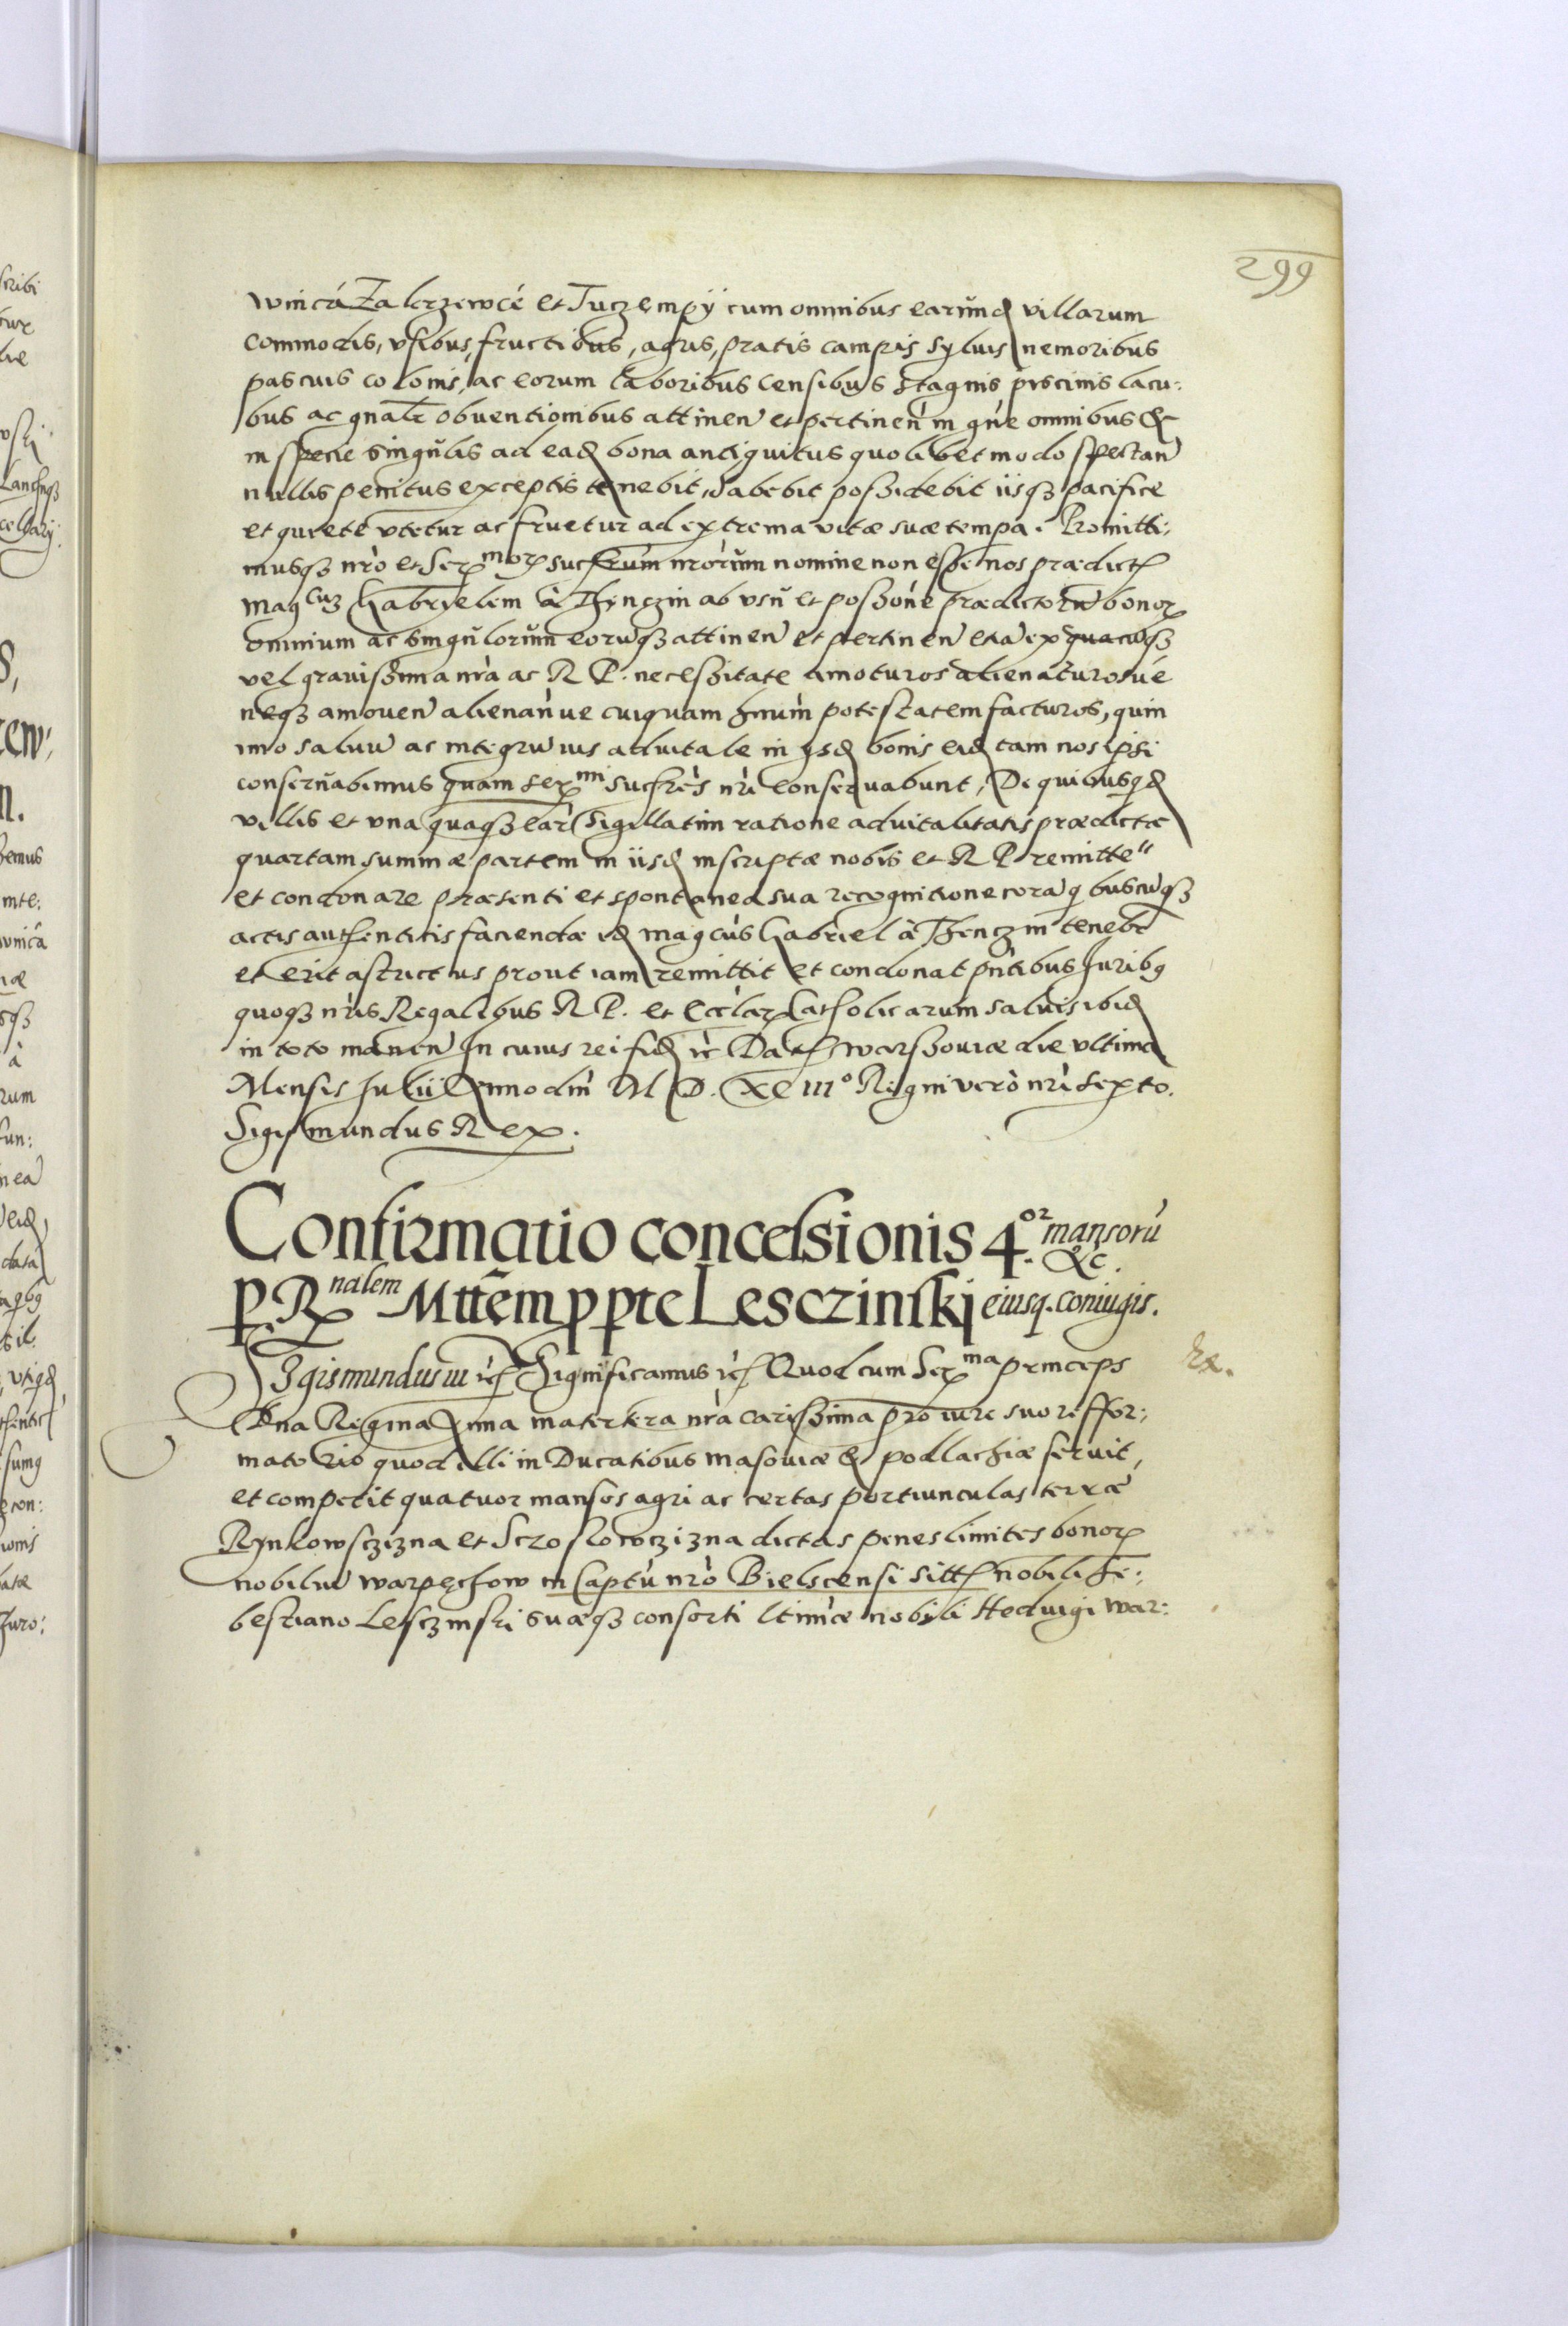 299
winicá Zakrzewcé et Tuczempÿ cum omnibus earundꝫ villarum
commodis, vsibus, fructibus, agris, pratis campis syluis nemoribus
pascuis colonis, ac eorum laboribus censibus stagnis piscinis lacu:
bus ac gn̄alr̄ obuentionibus attinen̄ et pertinen̄ in gn̄e omnibus &
in specie singulis ad eadꝫ bona antiquitus quolibet modo spectan̄
nullis penitus exceptis tenebit, habebit possidebit iisqꝫ pacifice
et quiete vtetur ac fruetur ad extrema vitæ suæ tempa. Promitti:
musqꝫ nr̄o et Serꝫ moꝝ succꝫrum nr̄orum nomine non esse nos prædictꝫ
magcuꝫ Gabryelem à Thęnczin ab vsu et possōne prædictorū bonoꝝ
omnium ac singulorum eorūqꝫ attinen̄ et pertinen̄ etiā ex quacūqꝫ
vel grauissima nr̄a ac R P. necessitate amoturos alienaturosúe
neqꝫ amouen̄ alienan̄ue cuiquam hnīum potestatem facturos, quin
imo saluū ac integrū ius aduitale in ysdꝫ bonis eidꝫ tam nos ipsi
conseruabimus quam serꝫ mi succꝫres nr̄i conseruabunt, De quibusqdꝫ
villis et vna quaqꝫ ear̄ sigillatim ratione aduitalitatis prædictæ
quartam summæ partem in iisdꝫ inscriptæ nobis et R P. remitte
et condonare præsenti et spontanea sua recognitione corā qbuscūqꝫ
actis authenticis faciendæ idꝫ magcus Gabriel à Thęnczin tenebr̄
et erit astrictus prout iam remittit et condonat pn̄tibus Juribꝯ
quoqꝫ nr̄is Regalibus R P. et Eccl̄aꝝ Catholicarum saluis ibidꝫ
in toto manen̄ In cuius rei fidꝫ ꝛc̄ Datꝫ Warssouiæ die vltima
Mensis Julii Anno dn̄i M D. XC III° Regni verò nr̄i sexto.
Sigismundus Rex.
Confirmatio concessionis 4.or mansorū &c.
p Rꝫ nalem Mttēm p pte Lesczinskj eiusq. coniugis.
Sigismundus iii ꝛcꝫ Significamus ꝛcꝫ Quod cum Serꝫ ma princeps
Ex.
Dna Regina Anna matertera nr̄a carissima pro iure suo reffor:
matorio quod illi in Ducatibus Masouiæ & podlachiæ seruit,
et competit quatuor mansos agri ac certas portiunculas terræ
Rynkowsczizna et Scroslowczizna dictas penes limites bonoꝝ
nobiliū Warpęchow in Captū nr̄o Bielscensi sittꝫ nobili Se:
bestiano Lesczinski suæqꝫ consorti ltimæ nobili Heduigi War: